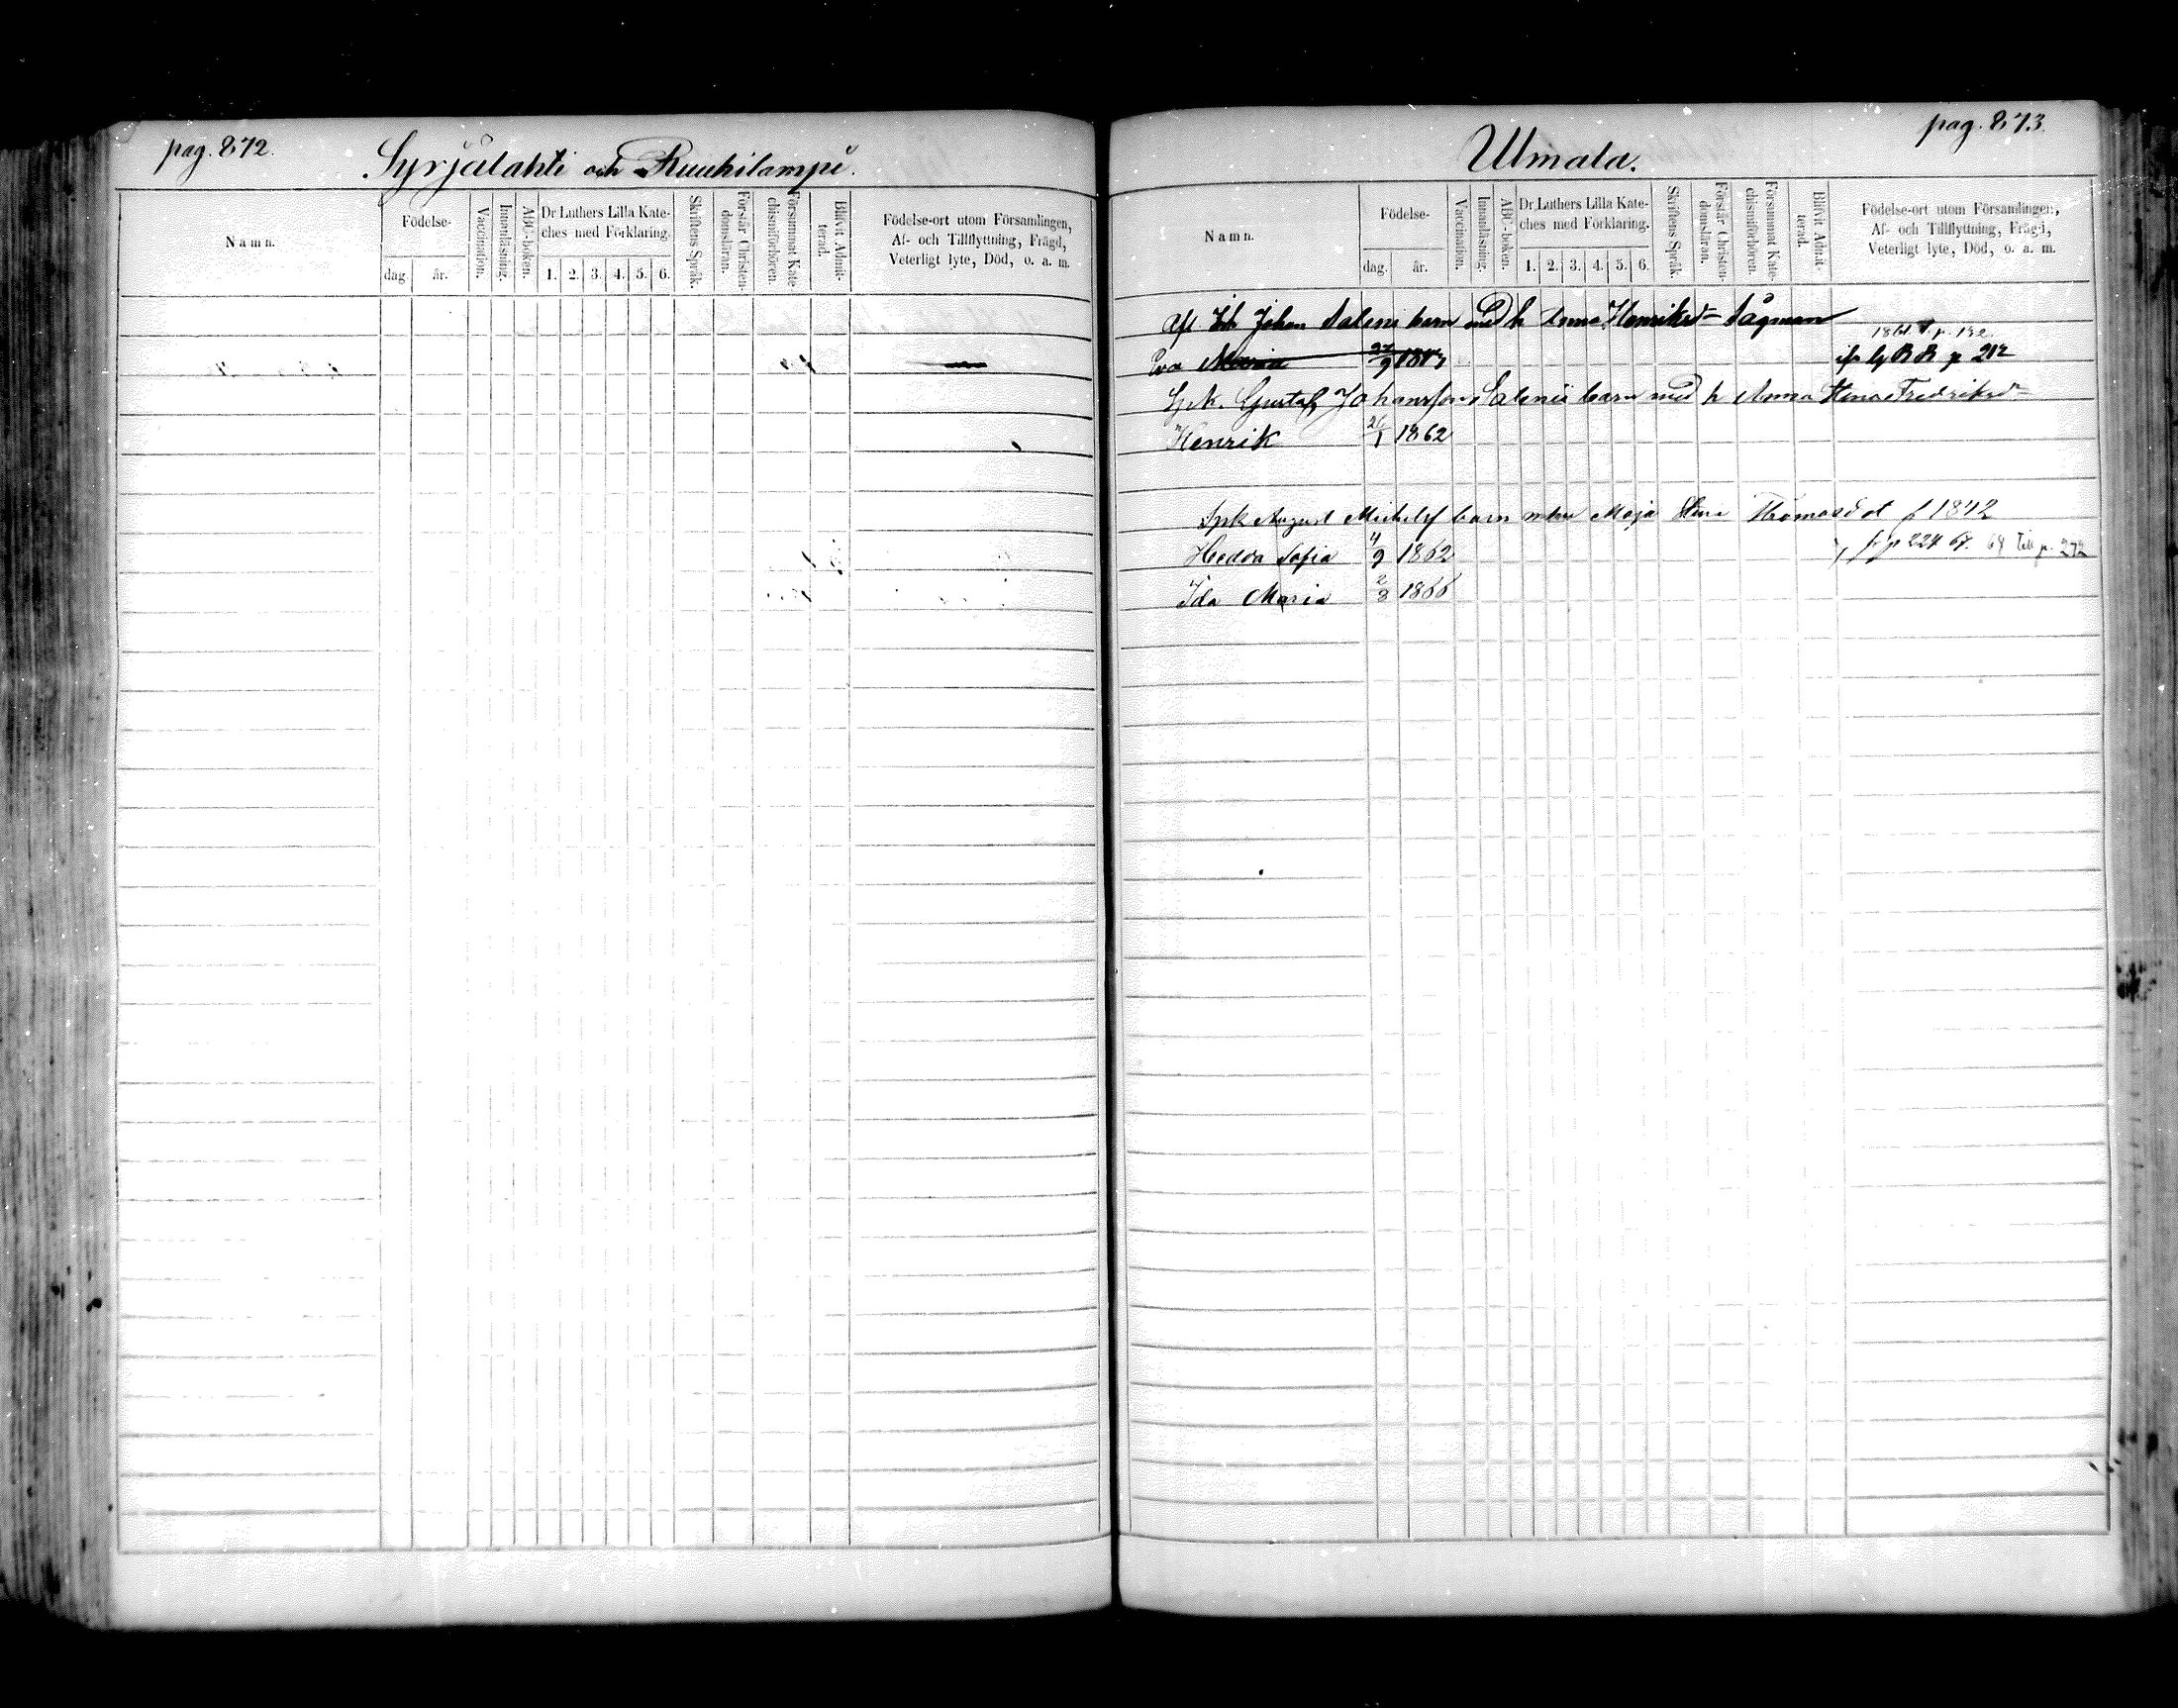 pag. 872.
Syrjälahti och Ruuhilampi.
Namn.
Födelse-
dag.
år.
Vaccination.
Innanläsning.
ABC-boken.
Dr Luthers Lilla Kate-
ches med Förklaring.
1. 2. 3. 4. 5. 6.
Skriftens Språk.
Förstår Christen-
domsläran.
Försummat Kate-
chismiförhören.
Blifvit Admit-
terad.
Födelse-ort utom Församlingen,
Af- och Tillflyttning, Frägd,
Veterligt lyte, Död, o. a. m.
pag. 873.
Ulmala.
Namn.
Födelse-
dag.
år.
Vaccination.
Innanläsning.
ABC-boken.
Dr Luthers Lilla Kate-
ches med Förklaring.
1. 2. 3. 4. 5. 6.
Skriftens Språk.
Förstår Christen-
domsläran.
Försummat Kate-
chismiförhören.
Blifvit Admit-
terad.
Födelse-ort utom Församlingen,
Af- och Tillflyttning, Frägd,
Veterligt lyte, Död, o. a. m.
Johan Saleni barn med h Anna Henriksd Sågman
Eva Maria 9 p 212
Gustaf Johansson Salenii barn med h Anna Fredriksd
Henrik 26/1 1862
Spk August Michelsf barn m hu Maja Stina Thomasdot f 1842
Hedda Sofia 4/9 1862 p 224 67. 69 till p. 272
Ida Maria 2/8 1866